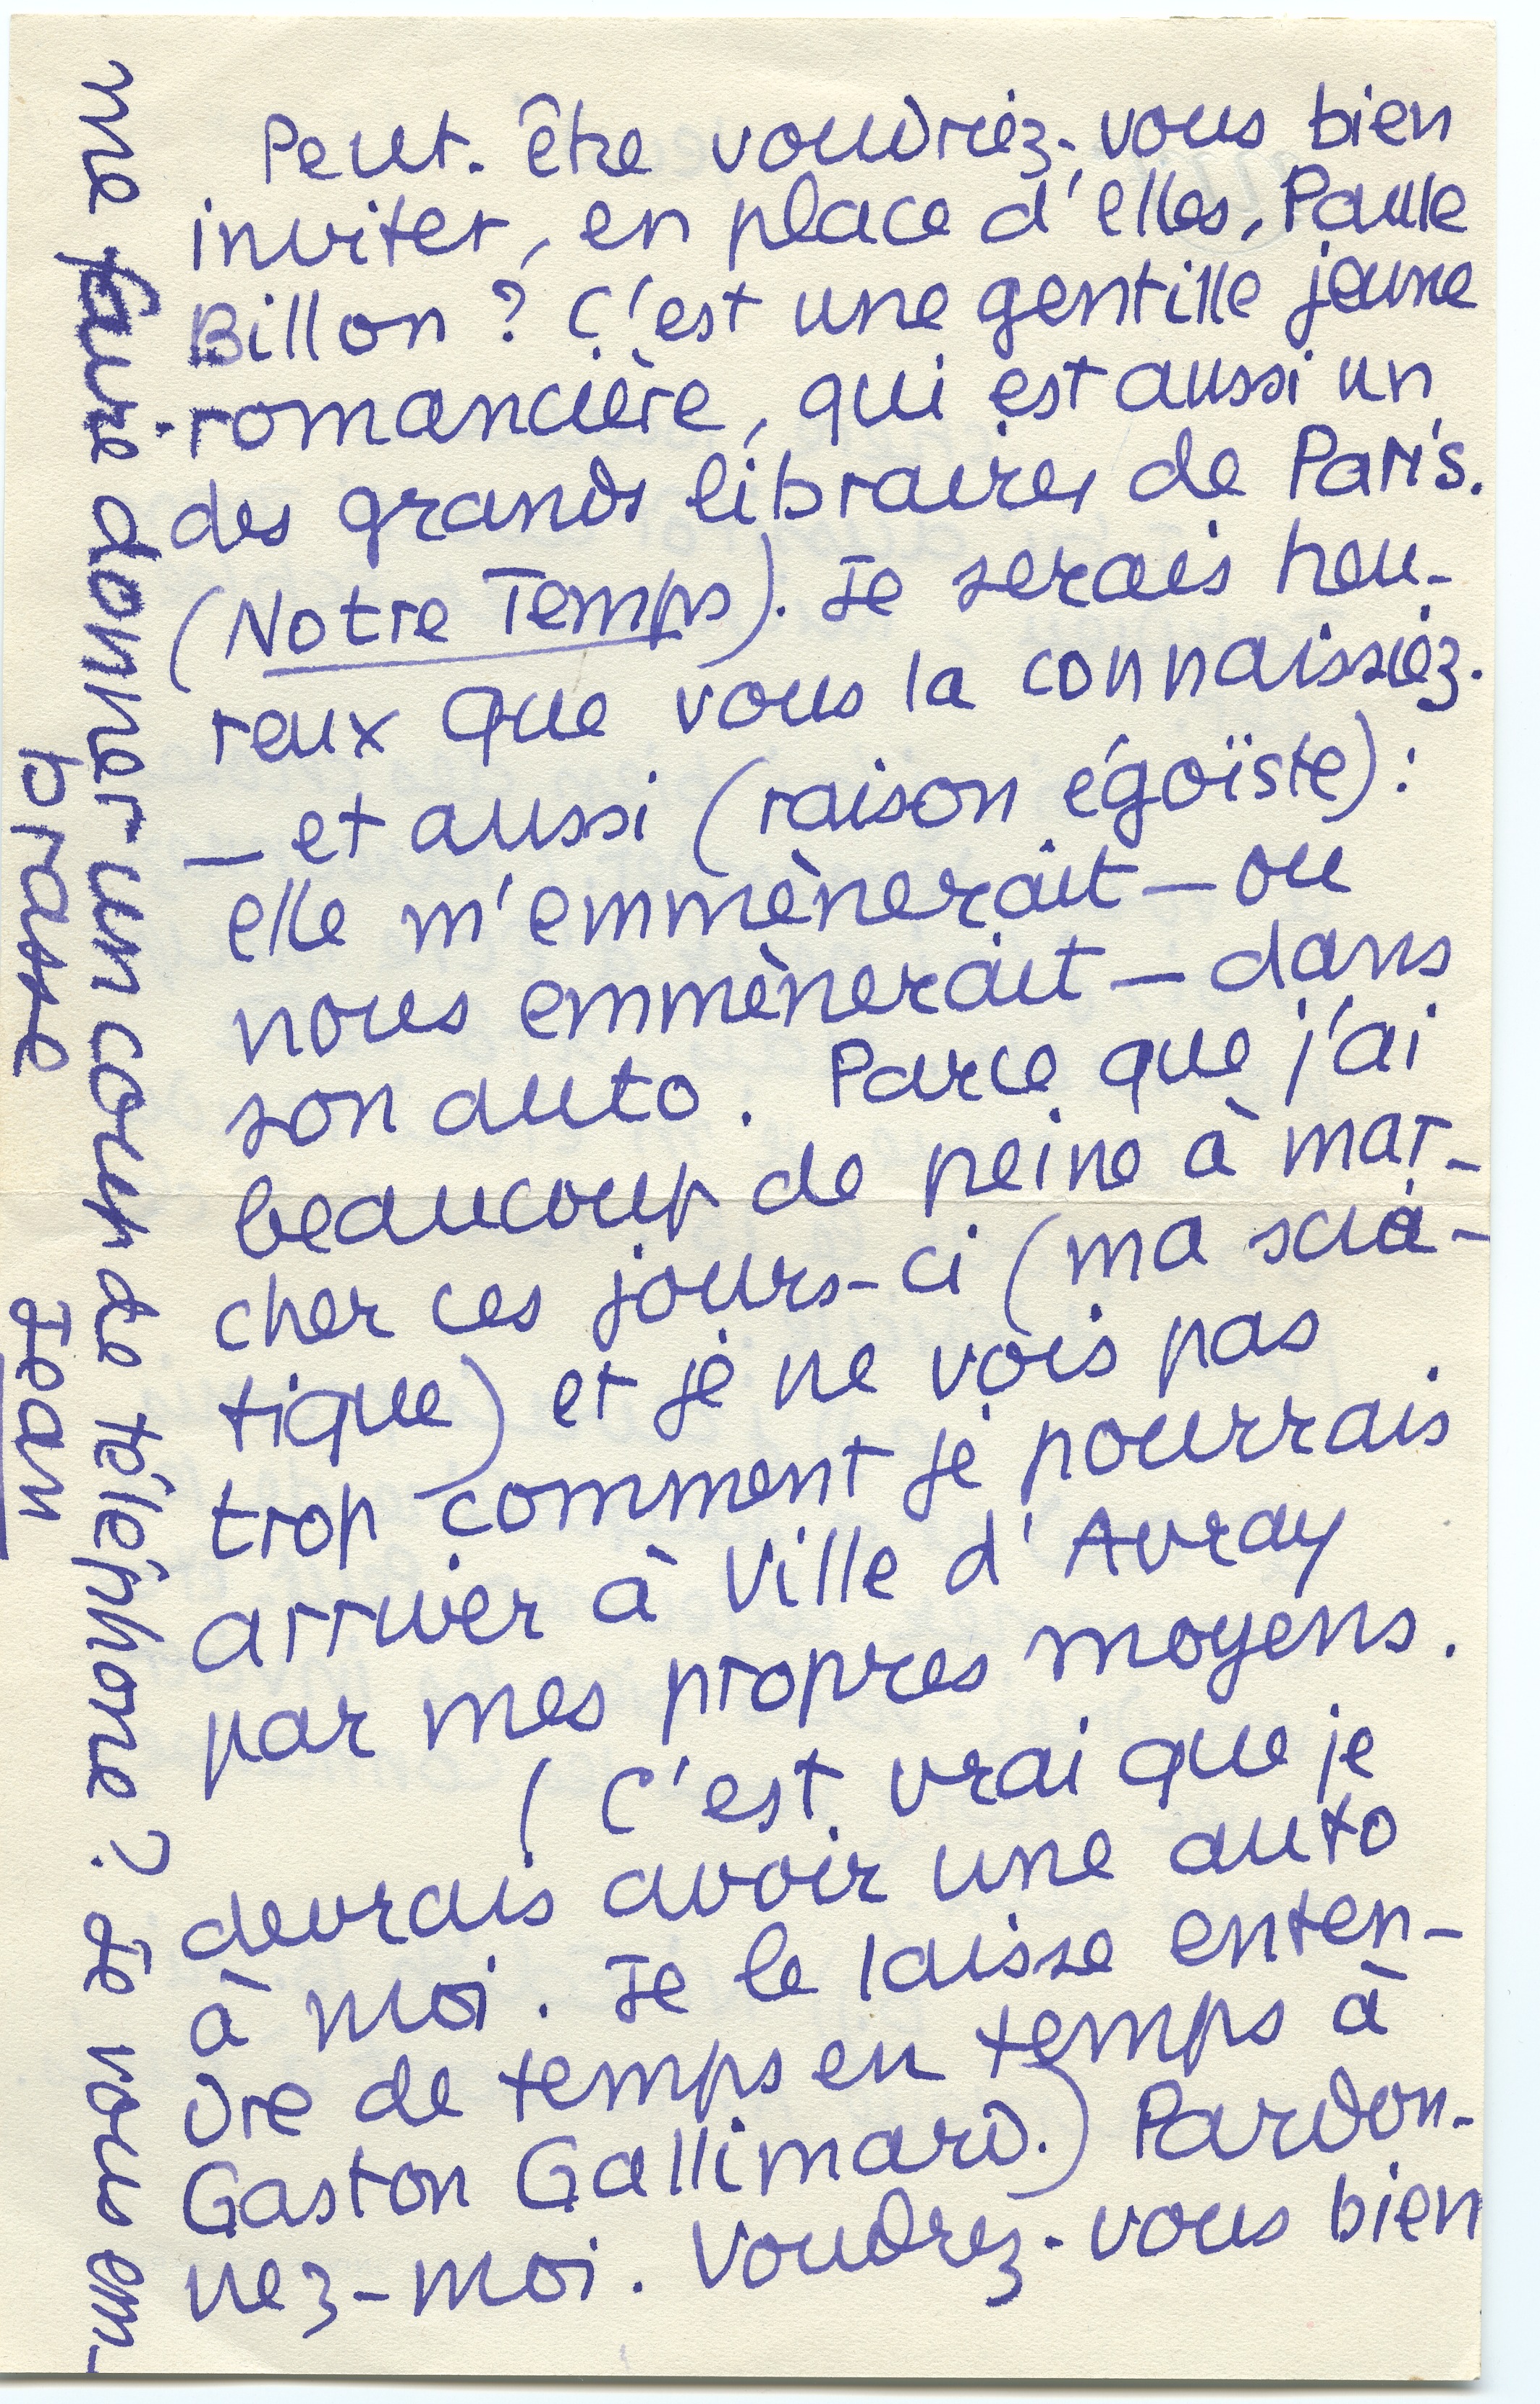 Peut-être voudriez-vous bien
inviter, en place d'elles, Paule
Billon ? C'est une gentille jeune
romancière, qui est aussi un
des grands libraires de Paris.
(Notre Temps). Je serais heu-
reux que vous la connaissiez.
— et aussi (raison égoïste) :
elle m'emmènerait — ou
nous emmènerait — dans
son auto. Parce que j'ai
beaucoup de peine à mar-
cher ces jours-ci (ma scia-
tique) et je ne vois pas
trop comment je pourrais
arriver à Ville d'Avray
par mes propres moyens.
(C'est vrai que je
devrais avoir une auto
à moi. Je le laisse enten-
dre de temps en temps à
Gaston Gallimard.) Pardon-
nez-moi. Voudrez-vous bien
me faire donner un coup de téléphone ? Je vous em-
brasse
Jean